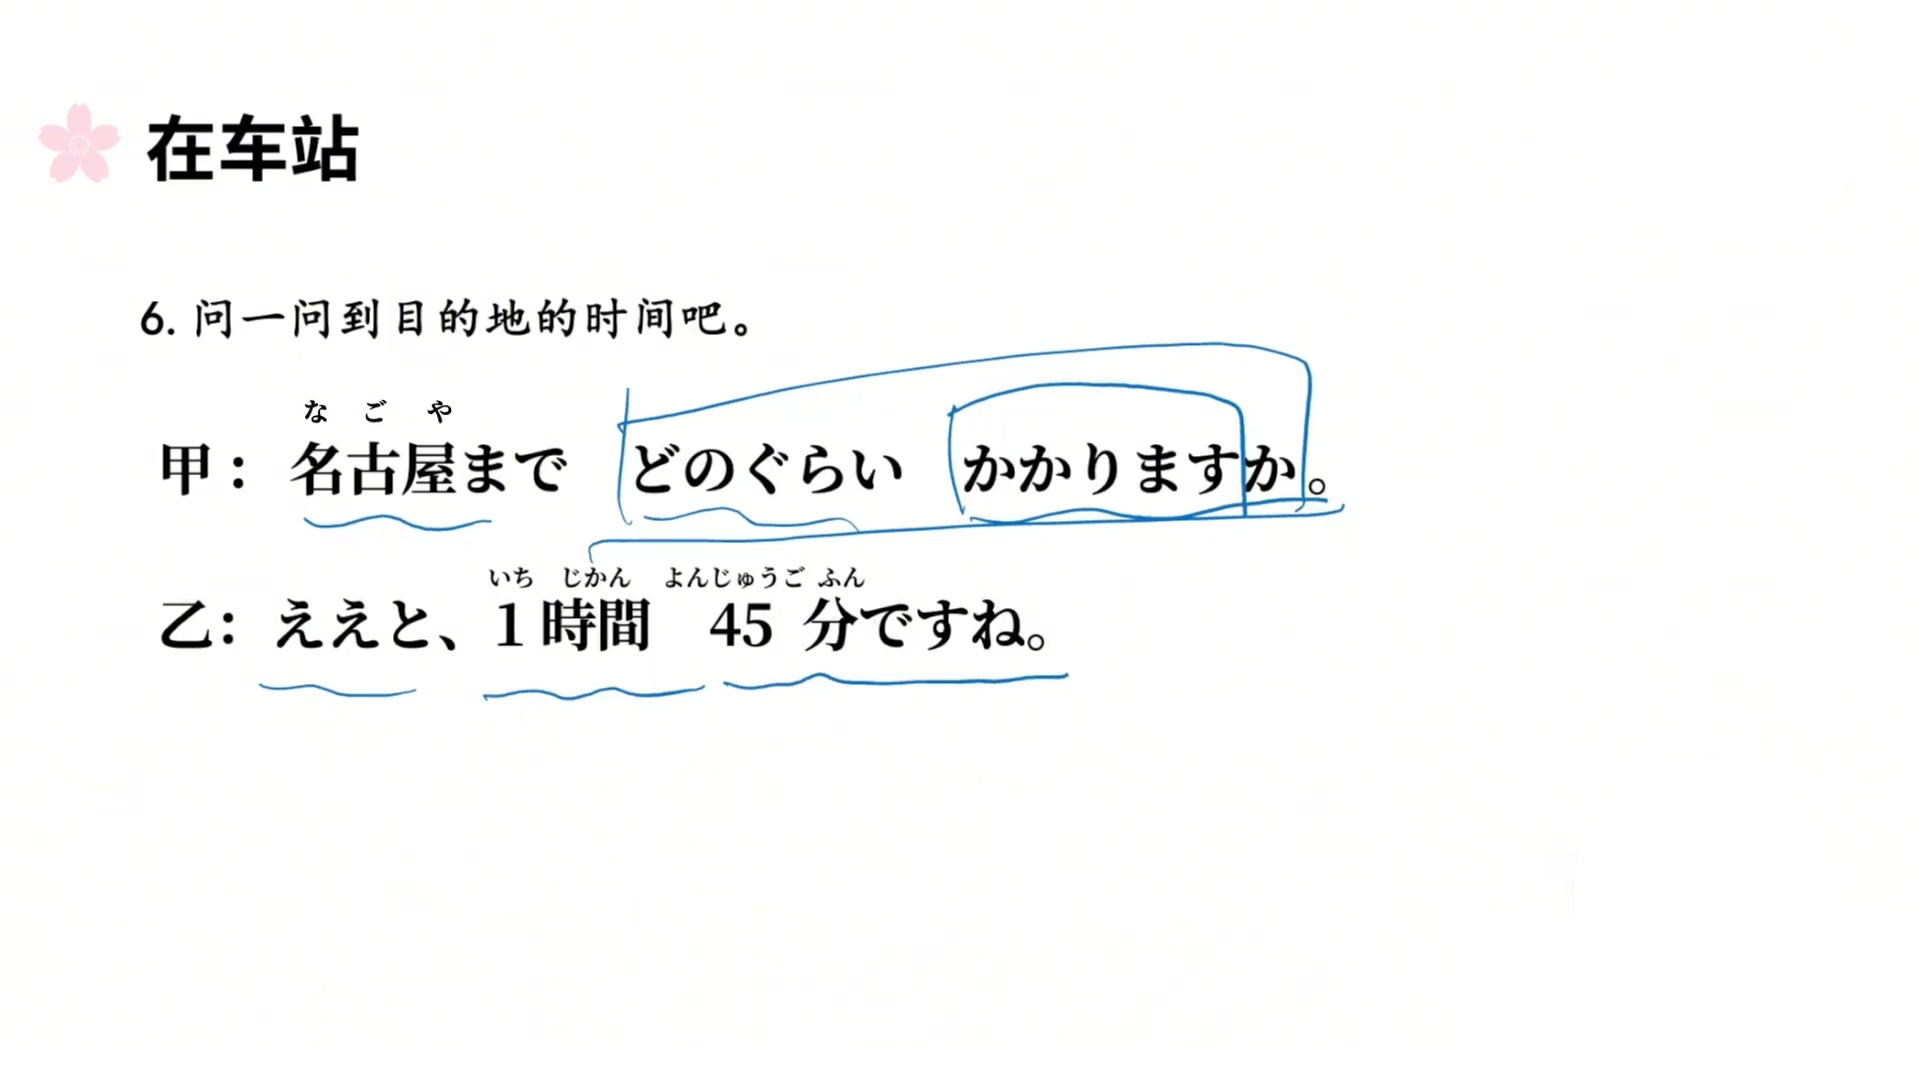 在车站
6. 问一问到目的地的时间吧。
なごや
甲：名古屋まで どのぐらい かかりますか。
いち じかん よんじゅうご ふん
乙：ええと、1時間 45分ですね。